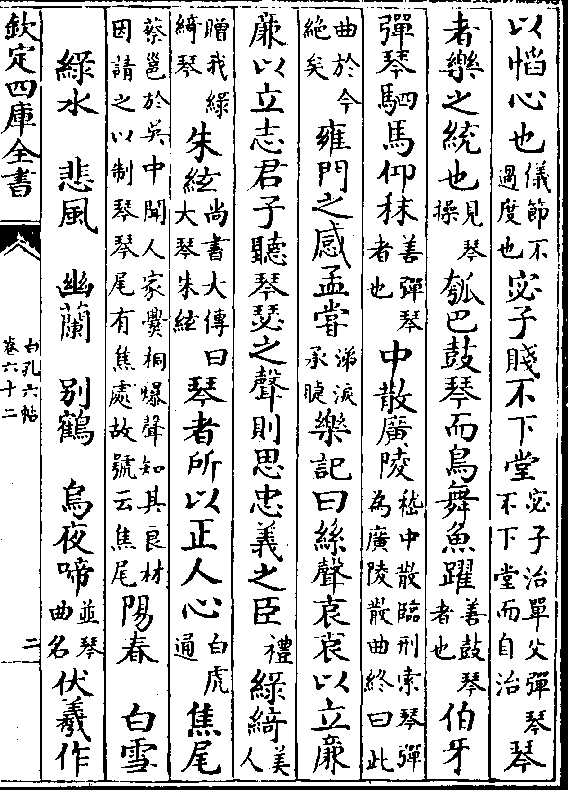 以慆心也儀節不過度也宓子賤不下堂宓子治單父彈琴不下堂而自治琴
者樂之統也見琴操瓠巴鼓琴而鳥舞魚躍善鼓琴者也伯牙
彈琴駟馬仰秣善彈琴者也中散廣陵嵇中散臨刑索琴彈為廣陵散曲終曰此
曲於今絕矣雍門之感孟嘗涕淚承睫樂記曰絲聲哀哀以立廉
廉以立志君子聽琴瑟之聲則思忠義之臣禮綠綺美人
贈我綠綺琴朱絃尚書大傳曰大琴朱絃琴者所以正人心白虎通焦尾
蔡邕於吳中聞人家爨桐爆聲知其良材因請之以制琴琴尾有焦處故號云焦尾陽春 白雪
綠水 悲風 幽蘭 別鶴 烏夜啼並琴曲名伏羲作
欽定四庫全書
白孔六帖
卷六十二
二